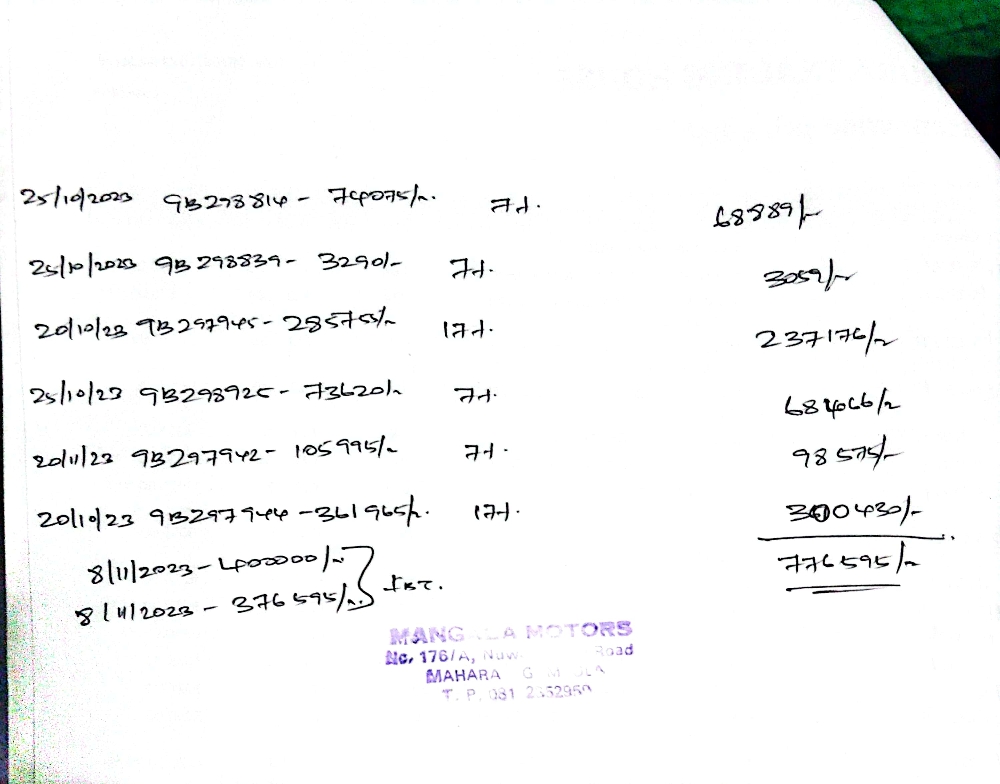 25/10/2023 9B298814 - 74075/- 7%. 68889/-
25/10/2023 9B298839 - 3290/- 7%. 3059/-
20/10/23 9B297945 - 285755/- 17%. 237176/-
25/10/23 9B298925 - 73620/- 7%. 68466/-
20/11/23 9B297942 - 105995/- 7%. 98575/-
20/10/23 9B297944 - 361965/- 17%. 300430/-
776595/-
8/11/2023 - 400000/-
8/11/2023 - 376595/-
MOTORS
No, 176/A, Road
T. P. 081